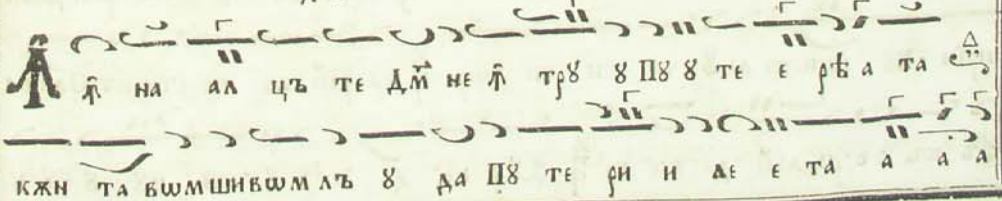 Ꙟ ꙟ̑ на ал цъ те Дм҃ не ꙟ̑ трȣ ȣ Пȣ ȣ те е рѣ а та
кѫн та вѡм ши вѡм лъ ȣ да Пȣ те ри и ле е та а а а